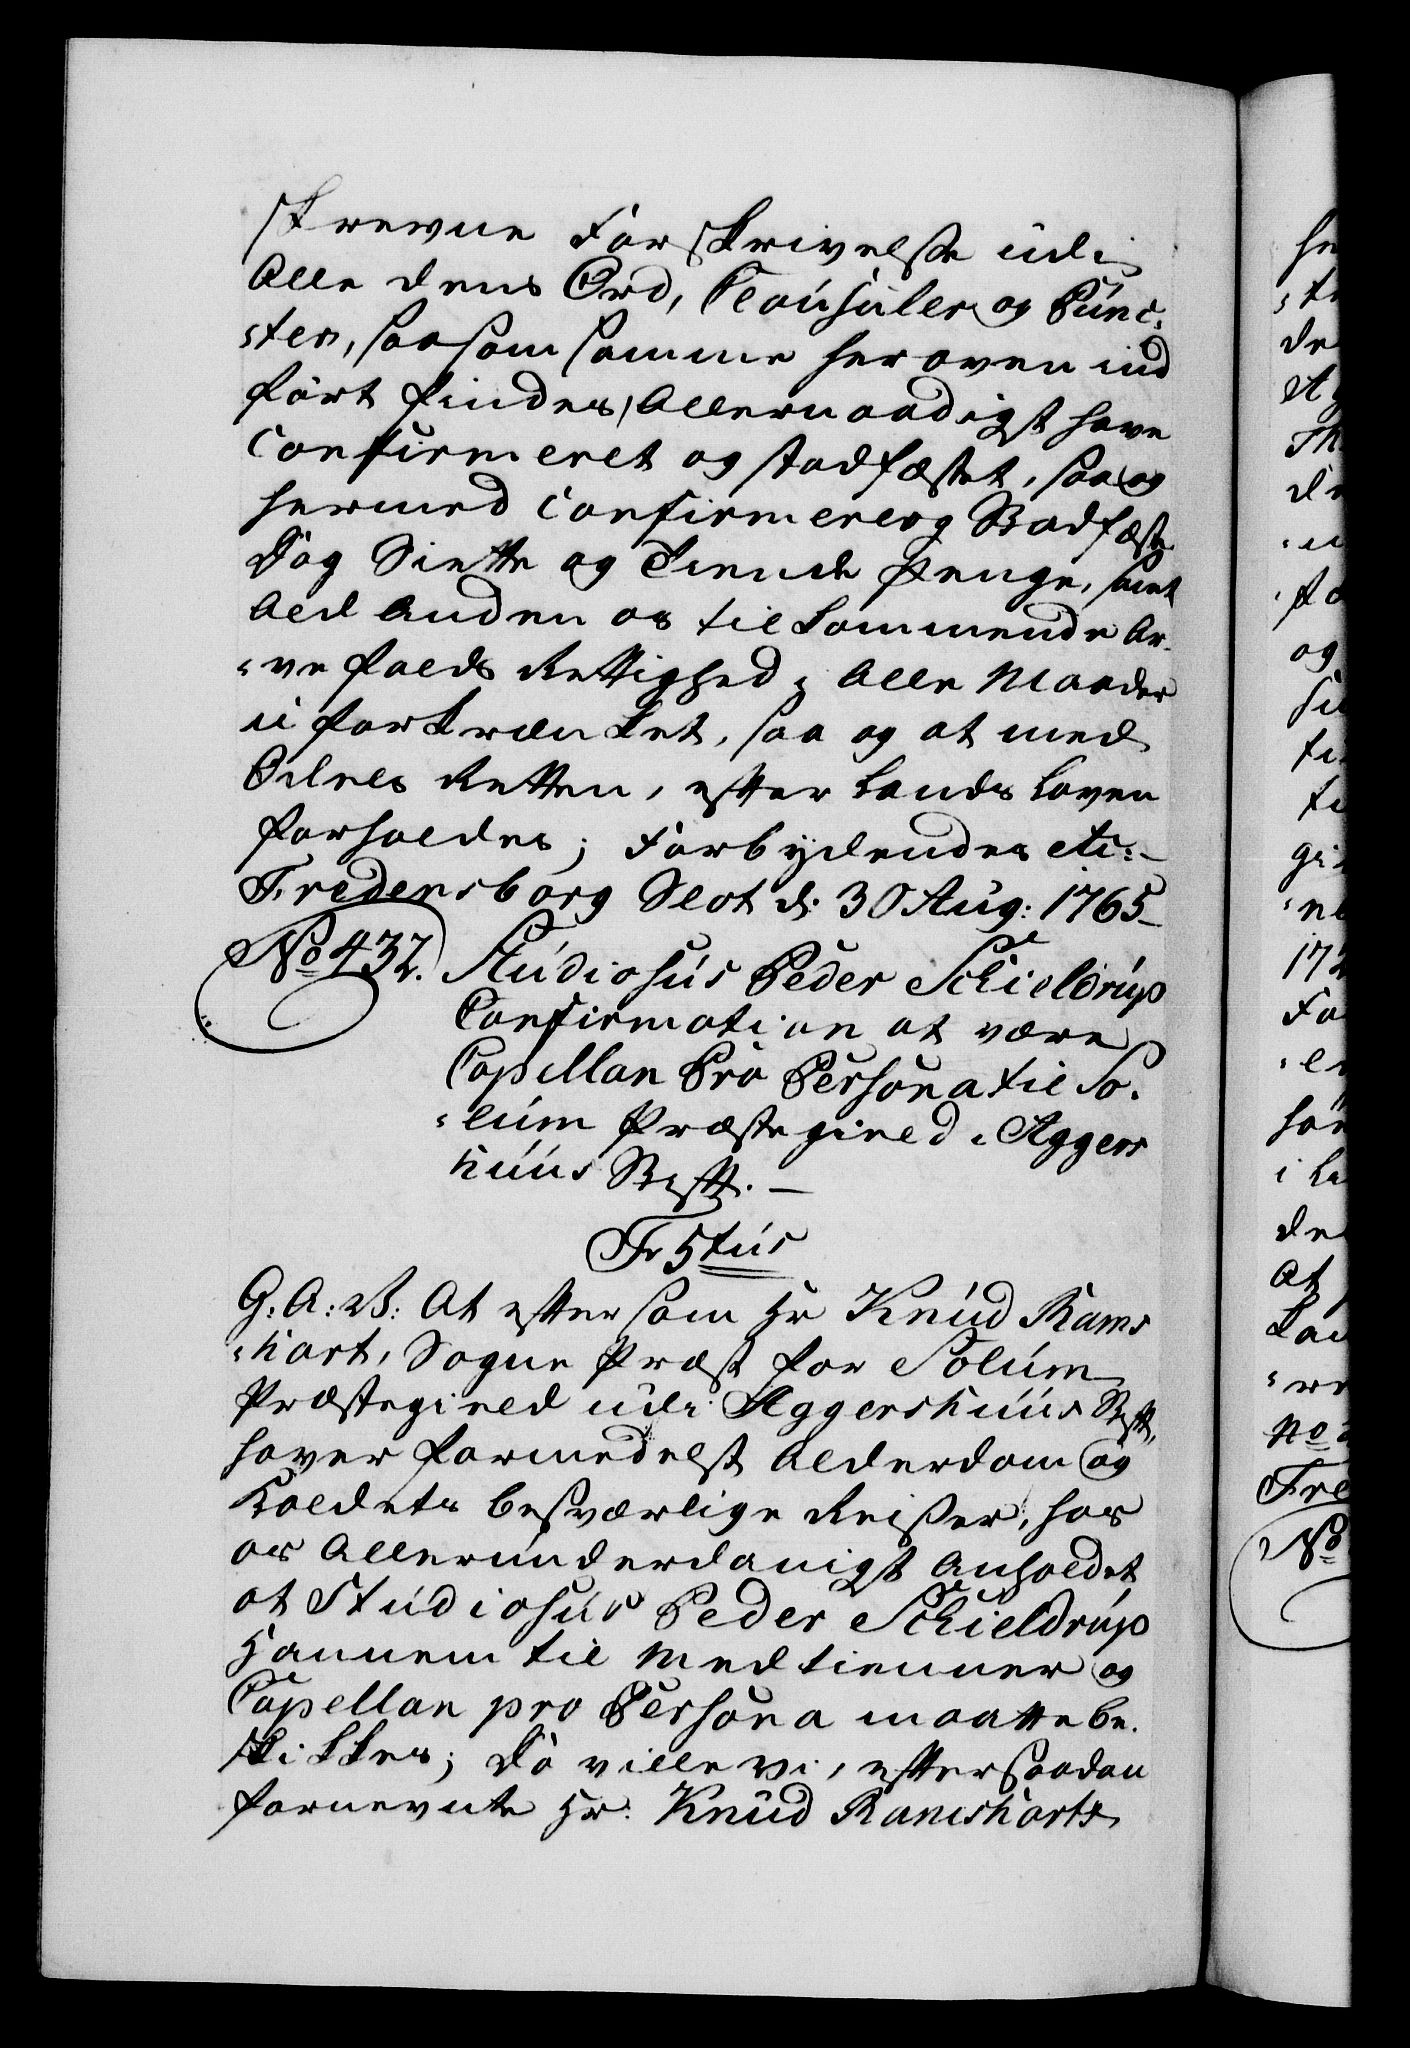 skrevne Forskrivelse udi
Alle dens Ord, Clausuler og Punc-
-ter, saasom samme her oven ind
ført findes, Allernaadigst have
Confirmeret og stadfæstet, saa og
hermed Confirmerer og Stadfæste
Dog Siette og Tiende Penge, samt
Ald Anden os tilkommende Ar-
-ve falds Rettighed i Alle Maader
u forkrænket, saa og at med
Odels Retten, efter Lands Loven
forholdes; Forbydendes etc:
Fredensborg Slot d: 30 Aug: 1765
No 432. Studiosus Peder Schieldrup
Confirmation at være
Capellan Pro Persona til So-
-lum Præstegield i Aggers
huus Stift.
Fr 5tus
G. A: V: At eftersom Hr Knud Rams
-hart, Sogne Præst for Solum
Præstegield udi Aggershuus Stift,
haver formedelst Alderdom og
Kaldets besværlige Reiser, hos
os Allerunderdanigst Anholdet
at Studiosus Peder Schieldrup
Hannem til Medtienner og
Capellan pro Persona maatte be-
skikkes; Da ville vi, efter saadan
fornevnte Hr: Knud Ramsharts